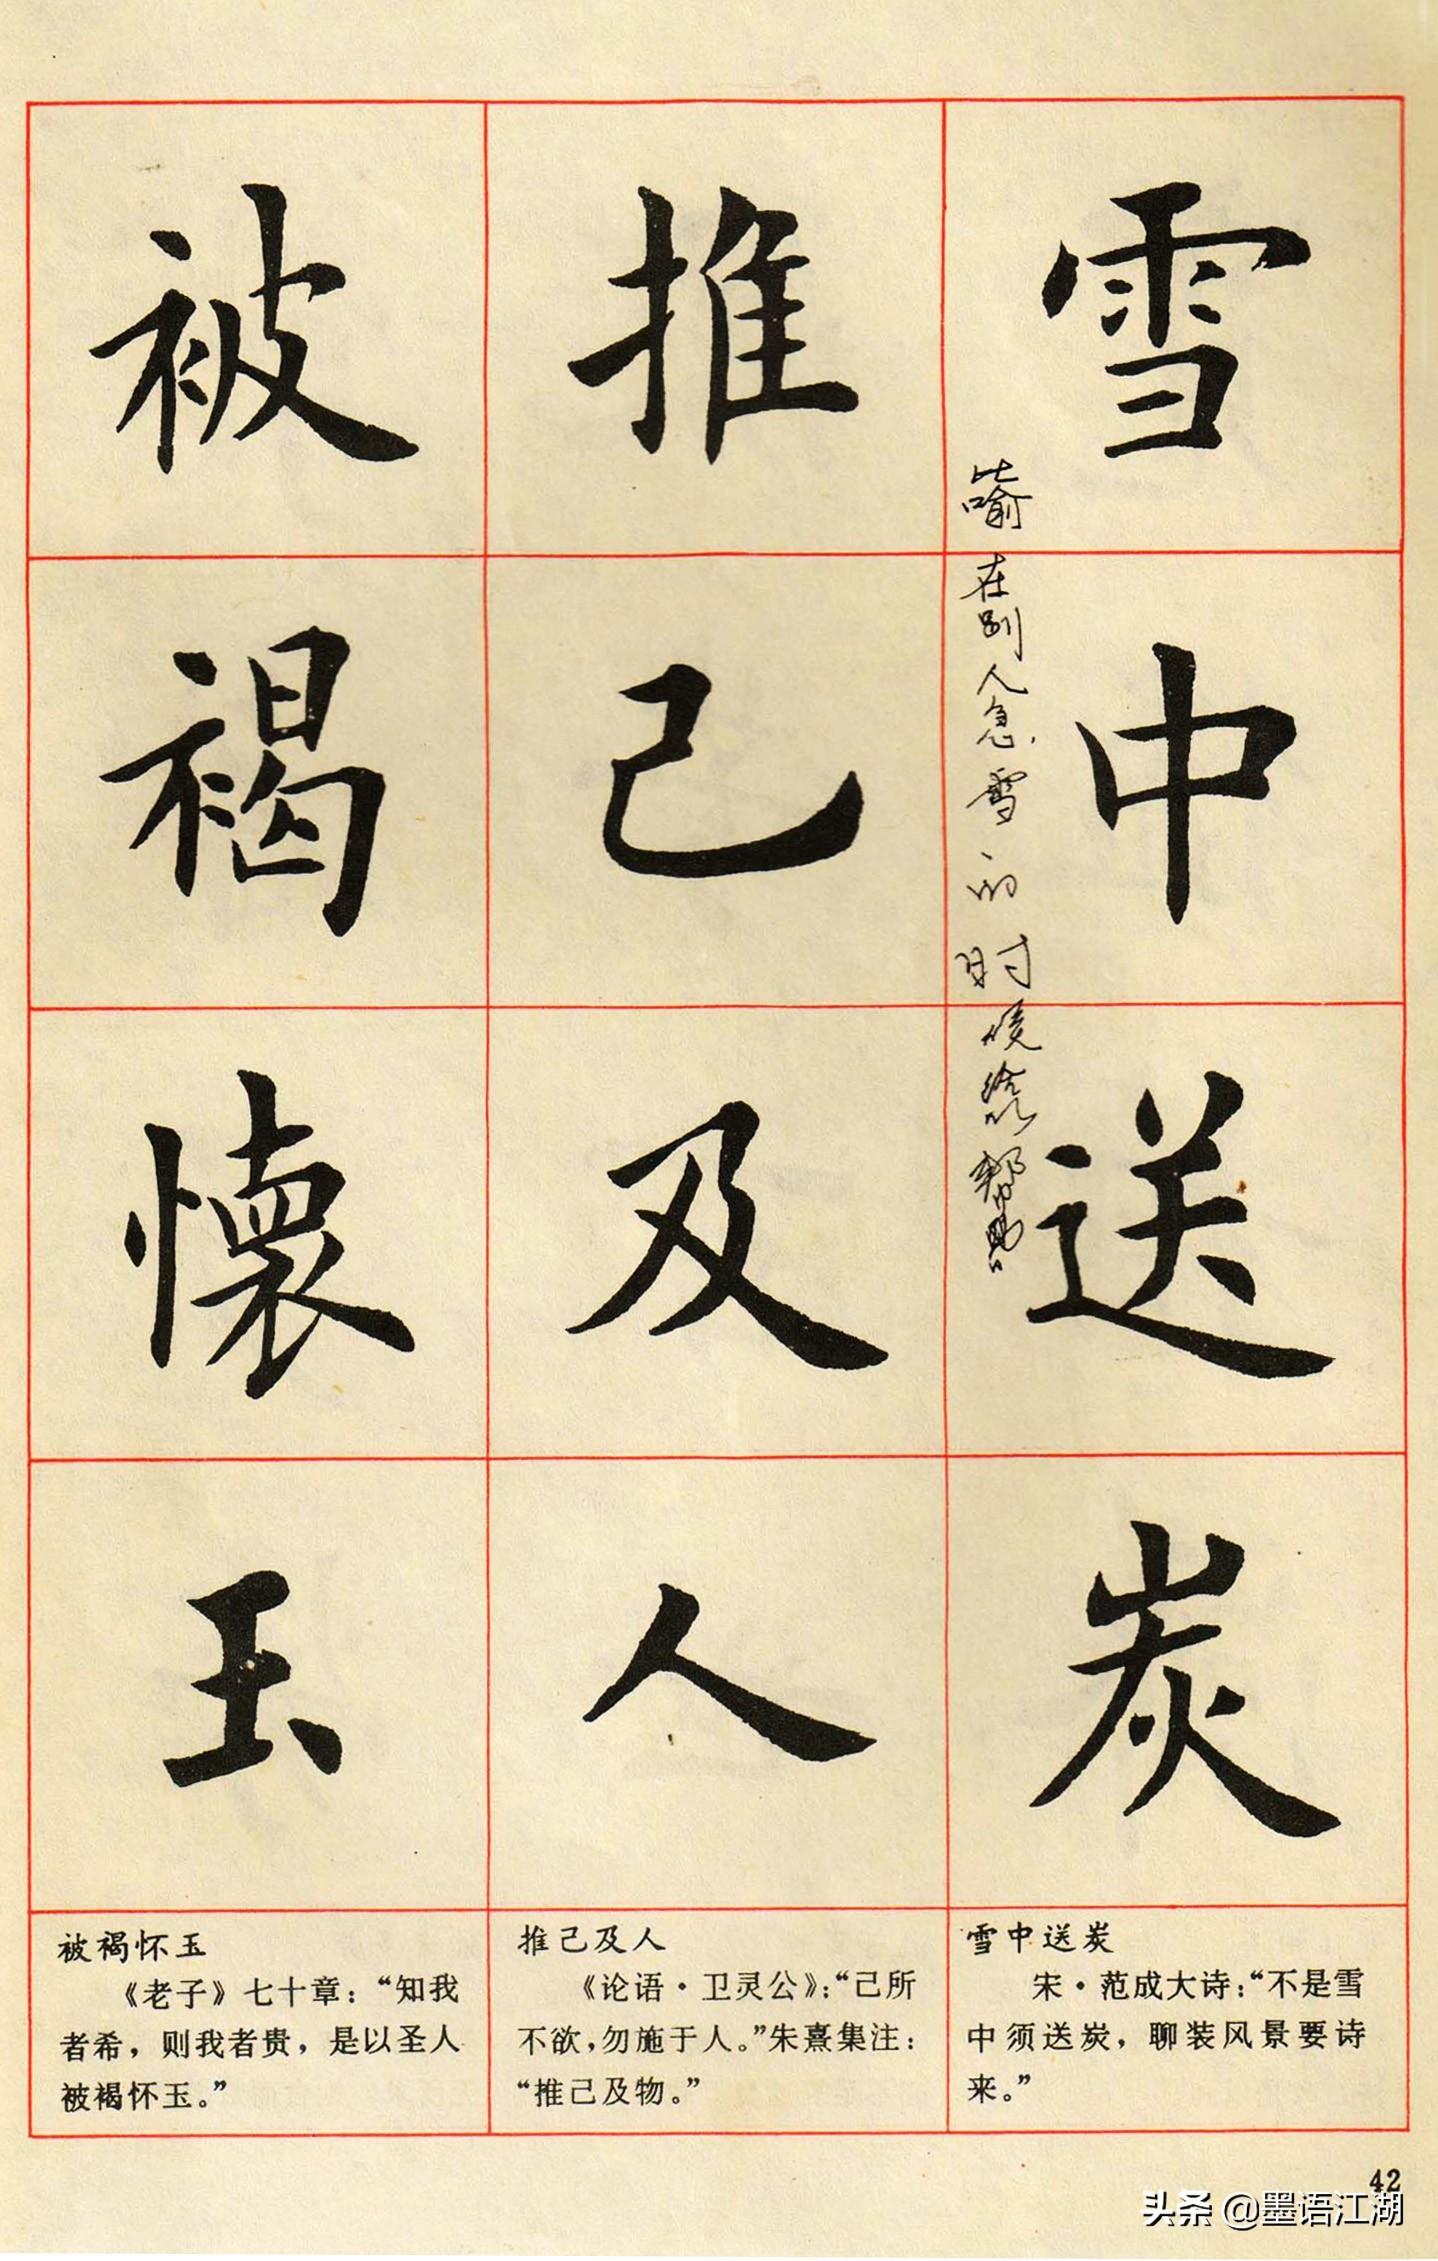 雪中送炭
推己及人
被褐懷玉
比喻在别人急需的时候给以帮助
雪中送炭
宋·范成大诗：“不是雪
中须送炭，聊装风景要诗
来。”
推己及人
《论语·卫灵公》：“己所
不欲，勿施于人。”朱熹集注：
“推己及物。”
被褐怀玉
《老子》七十章：“知我
者希，则我者贵，是以圣人
被褐怀玉。”
42
头条 @墨语江湖